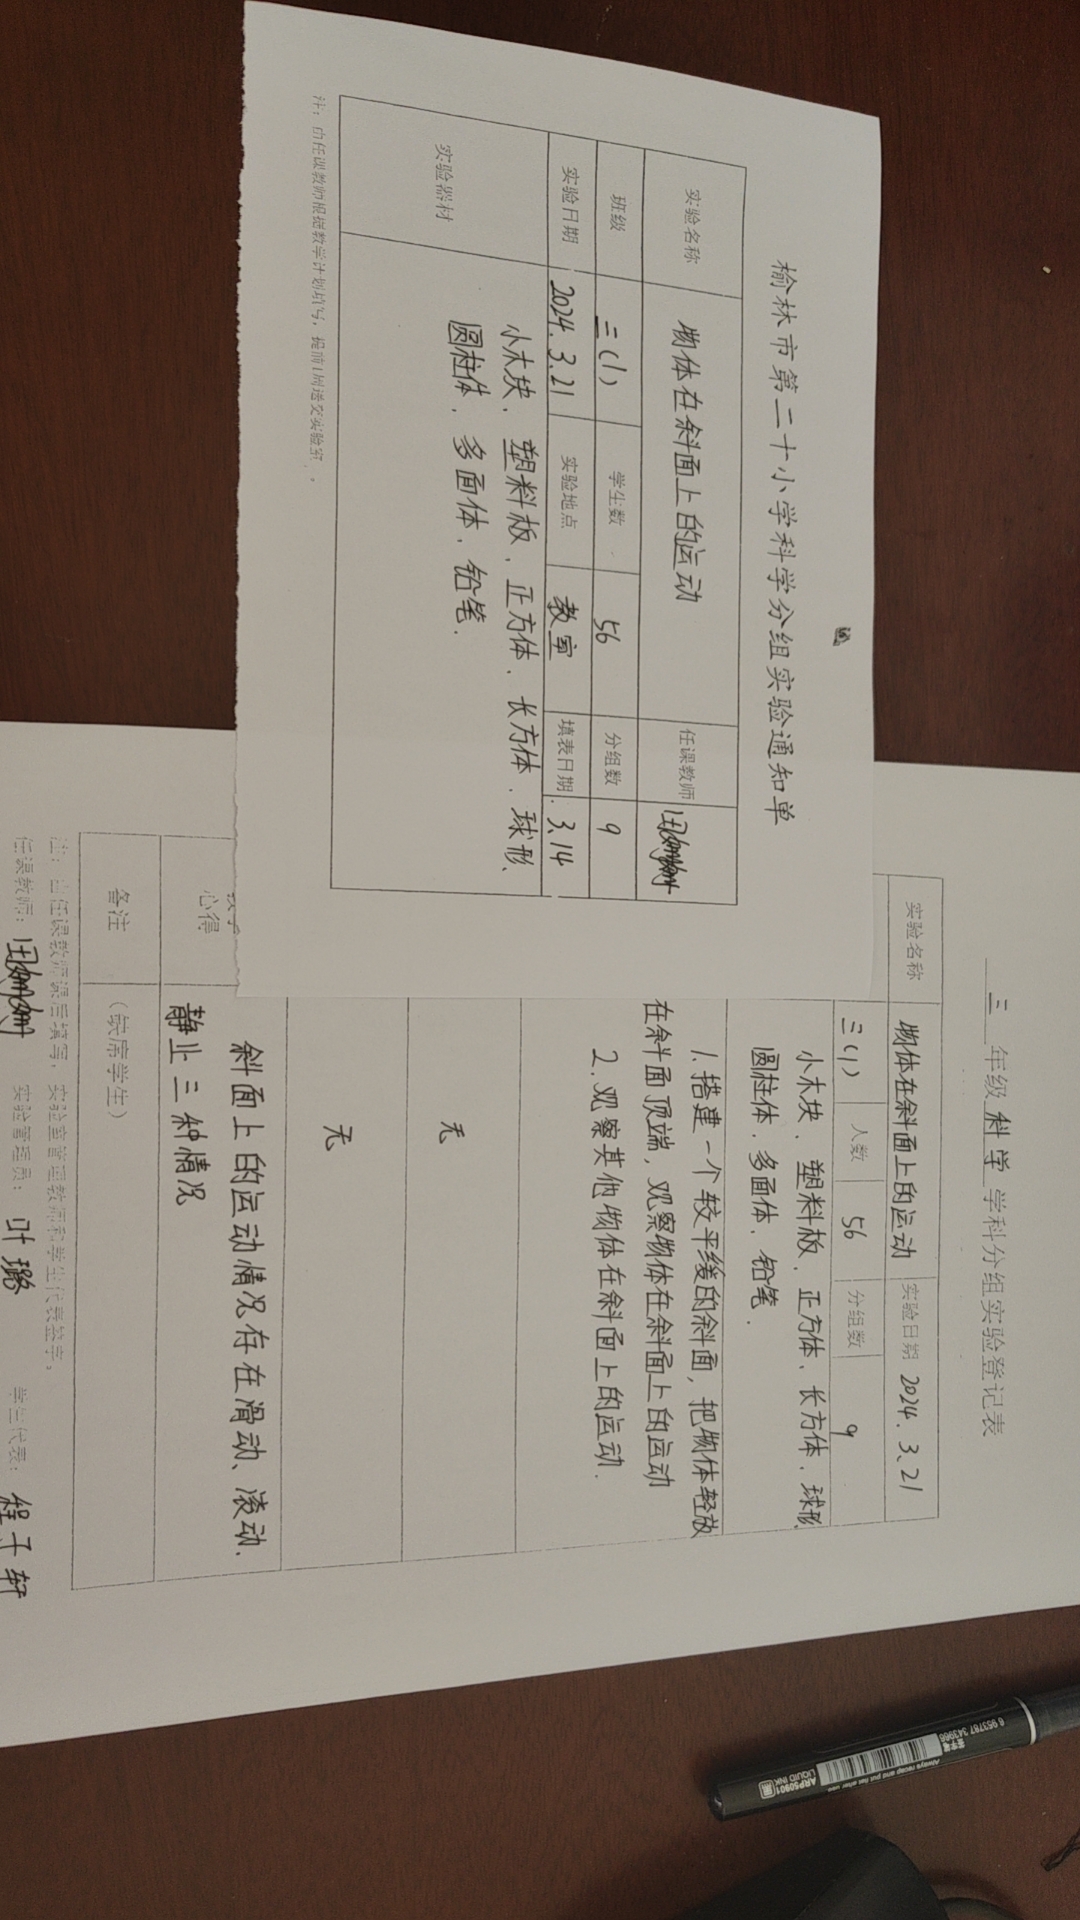 榆林市第二十小学科学分组实验通知单
实验名称 物体在斜面上的运动 任课教师
班级 三(1) 学生数 56 分组数 9
实验日期 2024.3.21 实验地点 教室 填表日期 3.14
实验器材
小木块、塑料板、正方体、长方体、球形、
圆柱体、多面体、铅笔.
注：由任课教师根据教学计划填写，提前1周送交实验室。
三 年级 科学 学科分组实验登记表
实验名称 物体在斜面上的运动 实验日期 2024.3.21
三(1) 人数 56 分组数 9
小木块、塑料板、正方体、长方体、球形、
圆柱体、多面体、铅笔.
1.搭建一个较平缓的斜面，把物体轻放
在斜面顶端，观察物体在斜面上的运动
2.观察其他物体在斜面上的运动.
无
无
心得
斜面上的运动情况存在滑动、滚动、
静止三种情况
备注 (缺席学生)
注：由任课教师课后填写，实验室管理教师和学生代表签字。
任课教师： 实验管理员： 叶璐 学生代表： 程子轩
6 953787 343966
签字笔
Always recap and put flat after use
ARP50901
LIQUID INK 黑